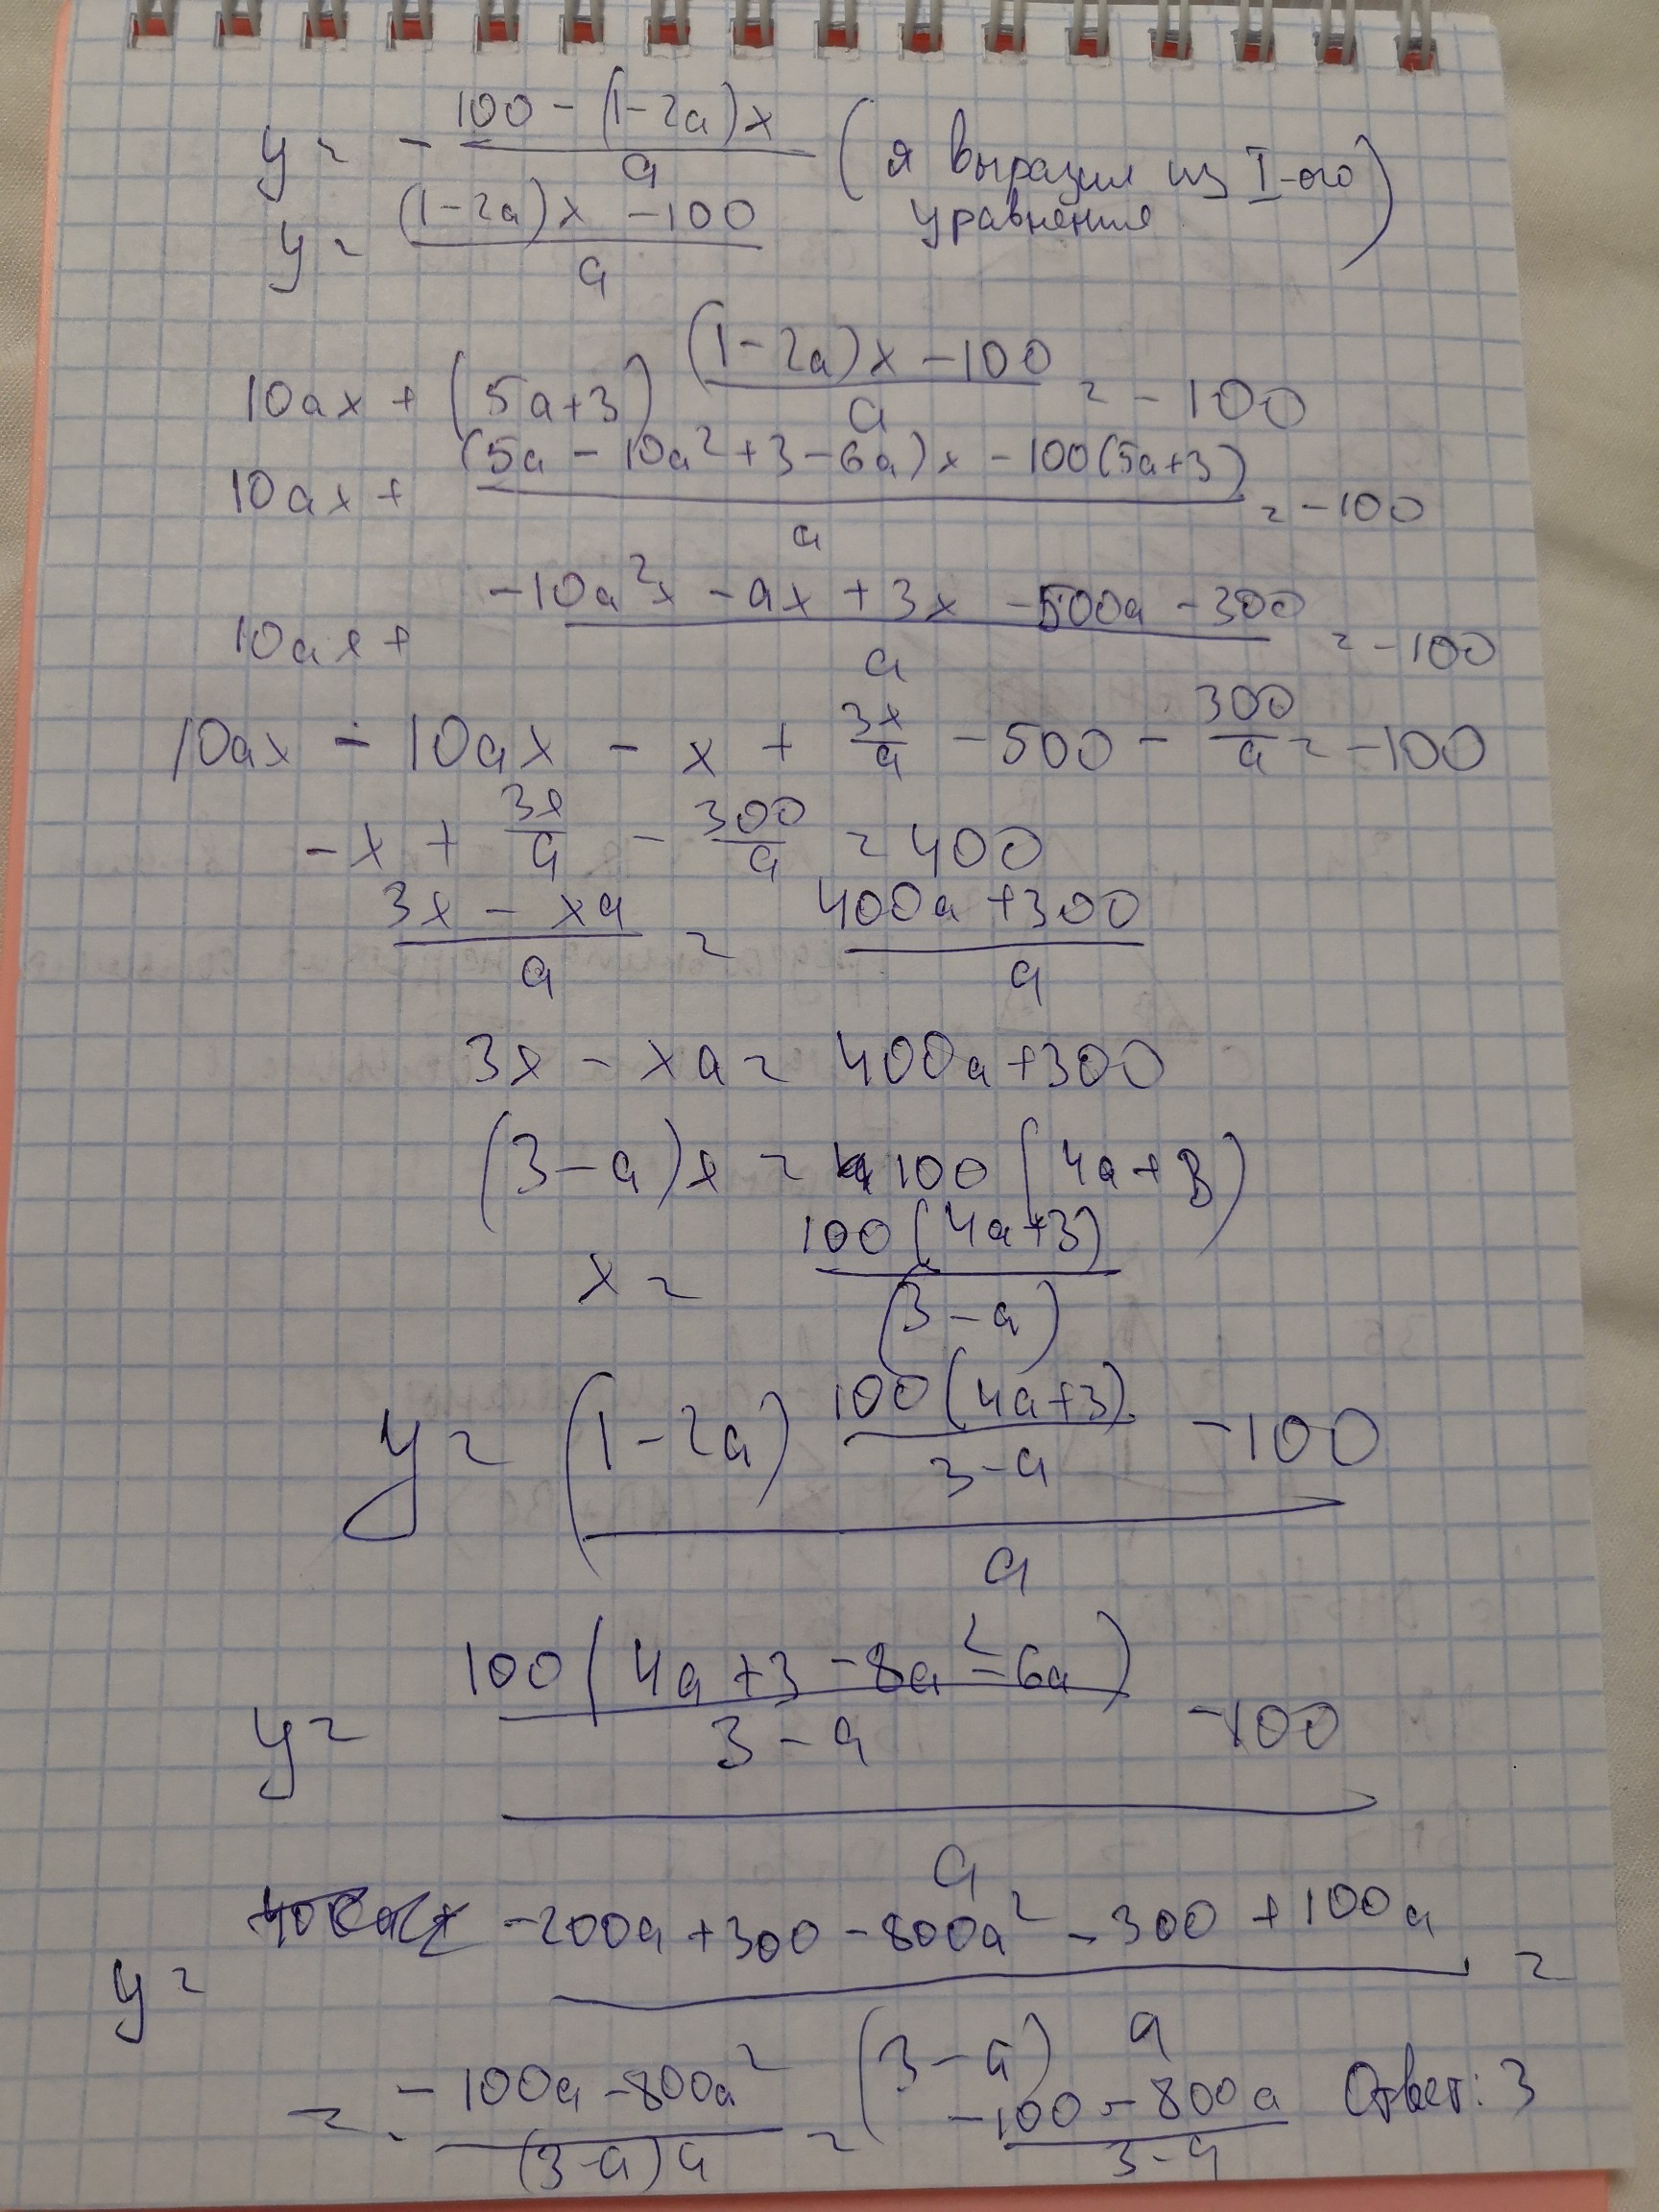 y = - (100 - (1-2a)x)/a (я выразил из I-ого уравнения)
y = ((1-2a)x - 100)/a
10ax + (5a+3) ((1-2a)x - 100)/a = -100
10ax + ((5a - 10a² + 3 - 6a)x - 100(5a+3))/a = -100
10ax + (-10a²x - ax + 3x - 500a - 300)/a = -100
10ax - 10ax - x + 3x/a - 500 - 300/a = -100
-x + 3x/a - 300/a = 400
(3x - xa)/a = (400a + 300)/a
3x - xa = 400a + 300
(3-a)x = 100(4a+3)
x = 100(4a+3)/(3-a)
y = ((1-2a) 100(4a+3)/(3-a) - 100)/a
y = (100(4a+3-8a²-6a)/(3-a) - 100)/a
y = (-200a + 300 - 800a² - 300 + 100a)/((3-a)a) =
= (-100a - 800a²)/((3-a)a) = (-100 - 800a)/(3-a) Ответ: 3